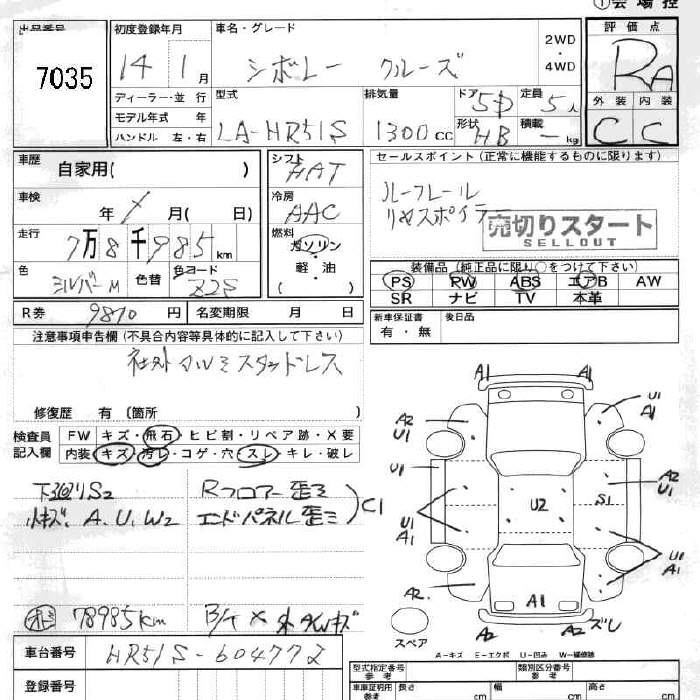 ①会場控
出品番号
7035
初度登録年月 14年 1月
車名・グレード シボレー クルーズ
2WD・4WD
評価点 RA
外装 C 内装 C
ディーラー・並行
モデル年式 年
ハンドル 左・右
型式 LA-HR51S
排気量 1300cc
ドア 5D 形状 HB
定員 5人 積載 - kg
車歴 自家用( )
シフト HAT
車検 年 月( 日)
冷房 AAC
走行 7万8千985km
燃料 ガソリン・軽・油
色 シルバーM 色替 色コード Z2S
R券 9870円 名変期限 月 日
セールスポイント(正常に機能するものに限ります)
ルーフレール
リヤスポイラー
売切りスタート
SELLOUT
装備品(純正品に限り○をつけて下さい)
PS RW ABS エアB AW
SR ナビ TV 本革
新車保証書 有・無 後日品
注意事項申告欄(不具合内容等具体的に記入して下さい)
社外アルミスタッドレス
修復歴 有(箇所 )
検査員記入欄
FW キズ・飛石・ヒビ割・リペア跡・X要
内装 キズ・汚レ・コゲ・穴・スレ・キレ・破レ
下廻りS2 Rフロアー歪ミ
小キズ、A、U、W2 エンドパネル歪ミ
C1
78985km B/T× 外
車台番号 HR51S-604772
登録番号
A1 A1
A2 U1 U1 A1
U1 U2 S1 A2 U1
U1 A1 U1 A1
A2 A1
A2 A2 ズレ
スペア
A-キズ E-エクボ U-凹み W-補修跡
型式指定番号 参考 類別区分番号 参考
車庫証明用 参考 長さ cm 幅 cm 高さ cm